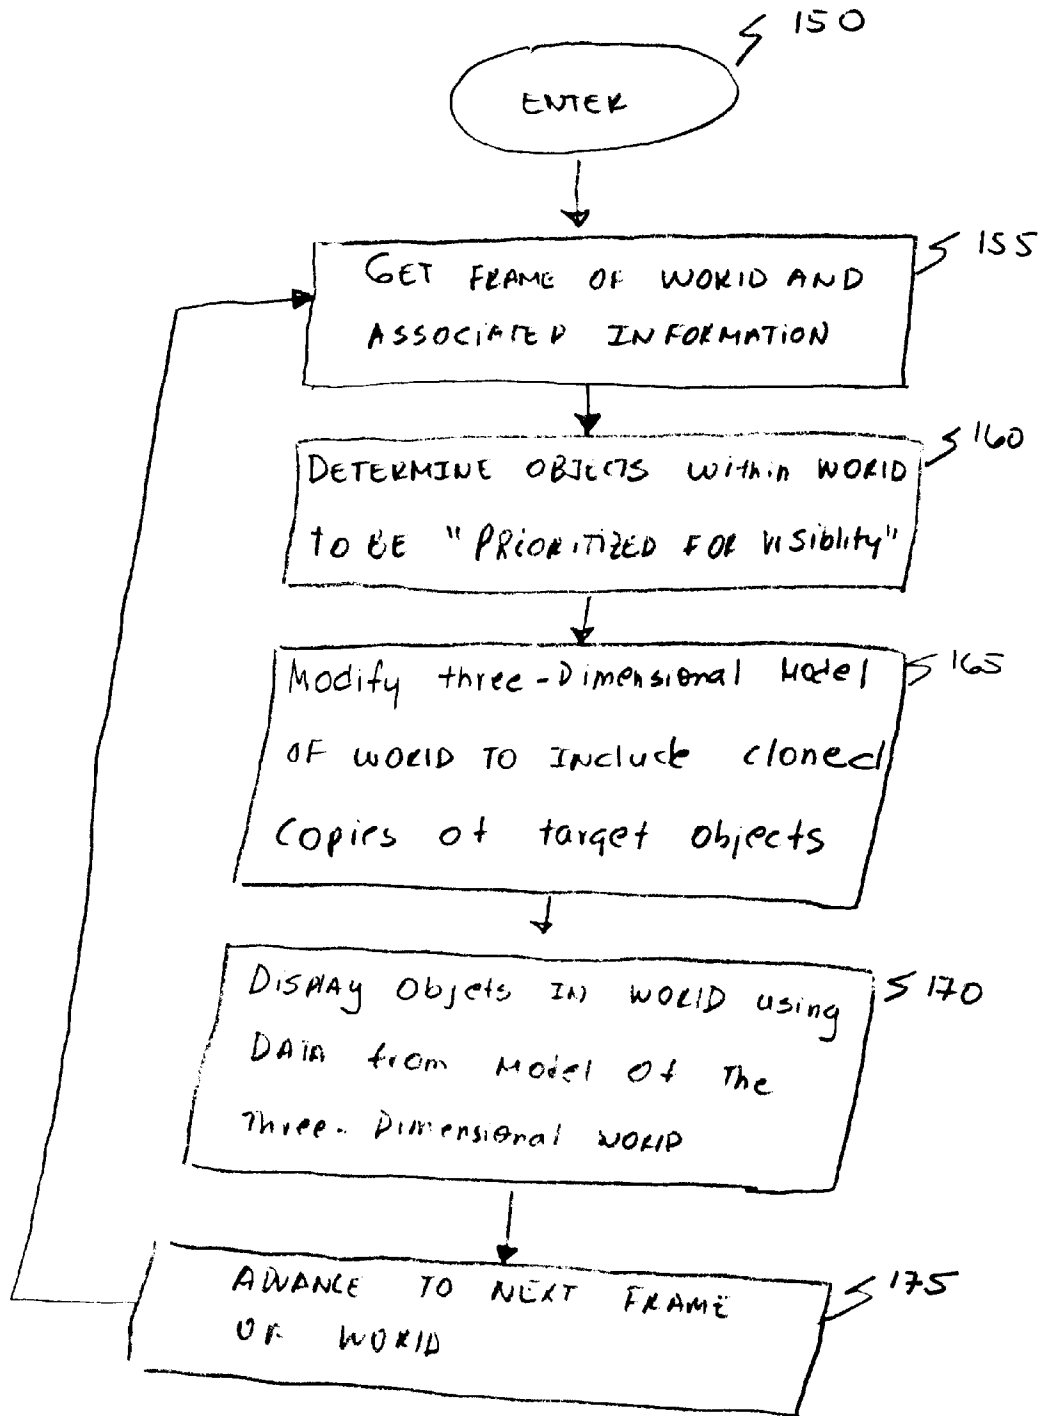 150
ENTER
155
GET FRAME OF WORlD AND
ASSOCIATED INFORMATION
160
DETERMINE OBJECTS within WORlD
to BE "PRiORiTiZED FOR ViSiblity"
165
Modify three-Dimensional Model
OF WORlD TO INclude cloned
Copies of target objects
170
DiSPlAy Objets IN WORlD using
DATA from Model Of The
Three-Dimensional WORlD
175
ADVANCE TO NEXT FRAME
OF WORlD